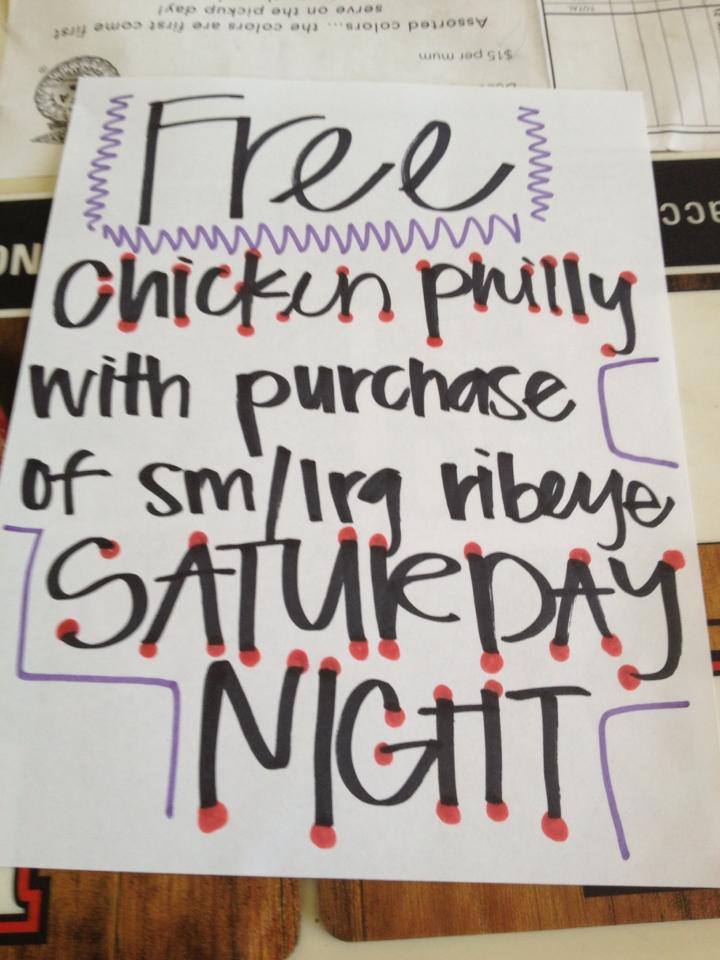 Assorted colors... the colors are first come first
serve on the pickup day!
$15 per mum
TOTAL
Free
Chicken philly
with purchase
of sm/lrg ribeye
SATURDAY
NIGHT